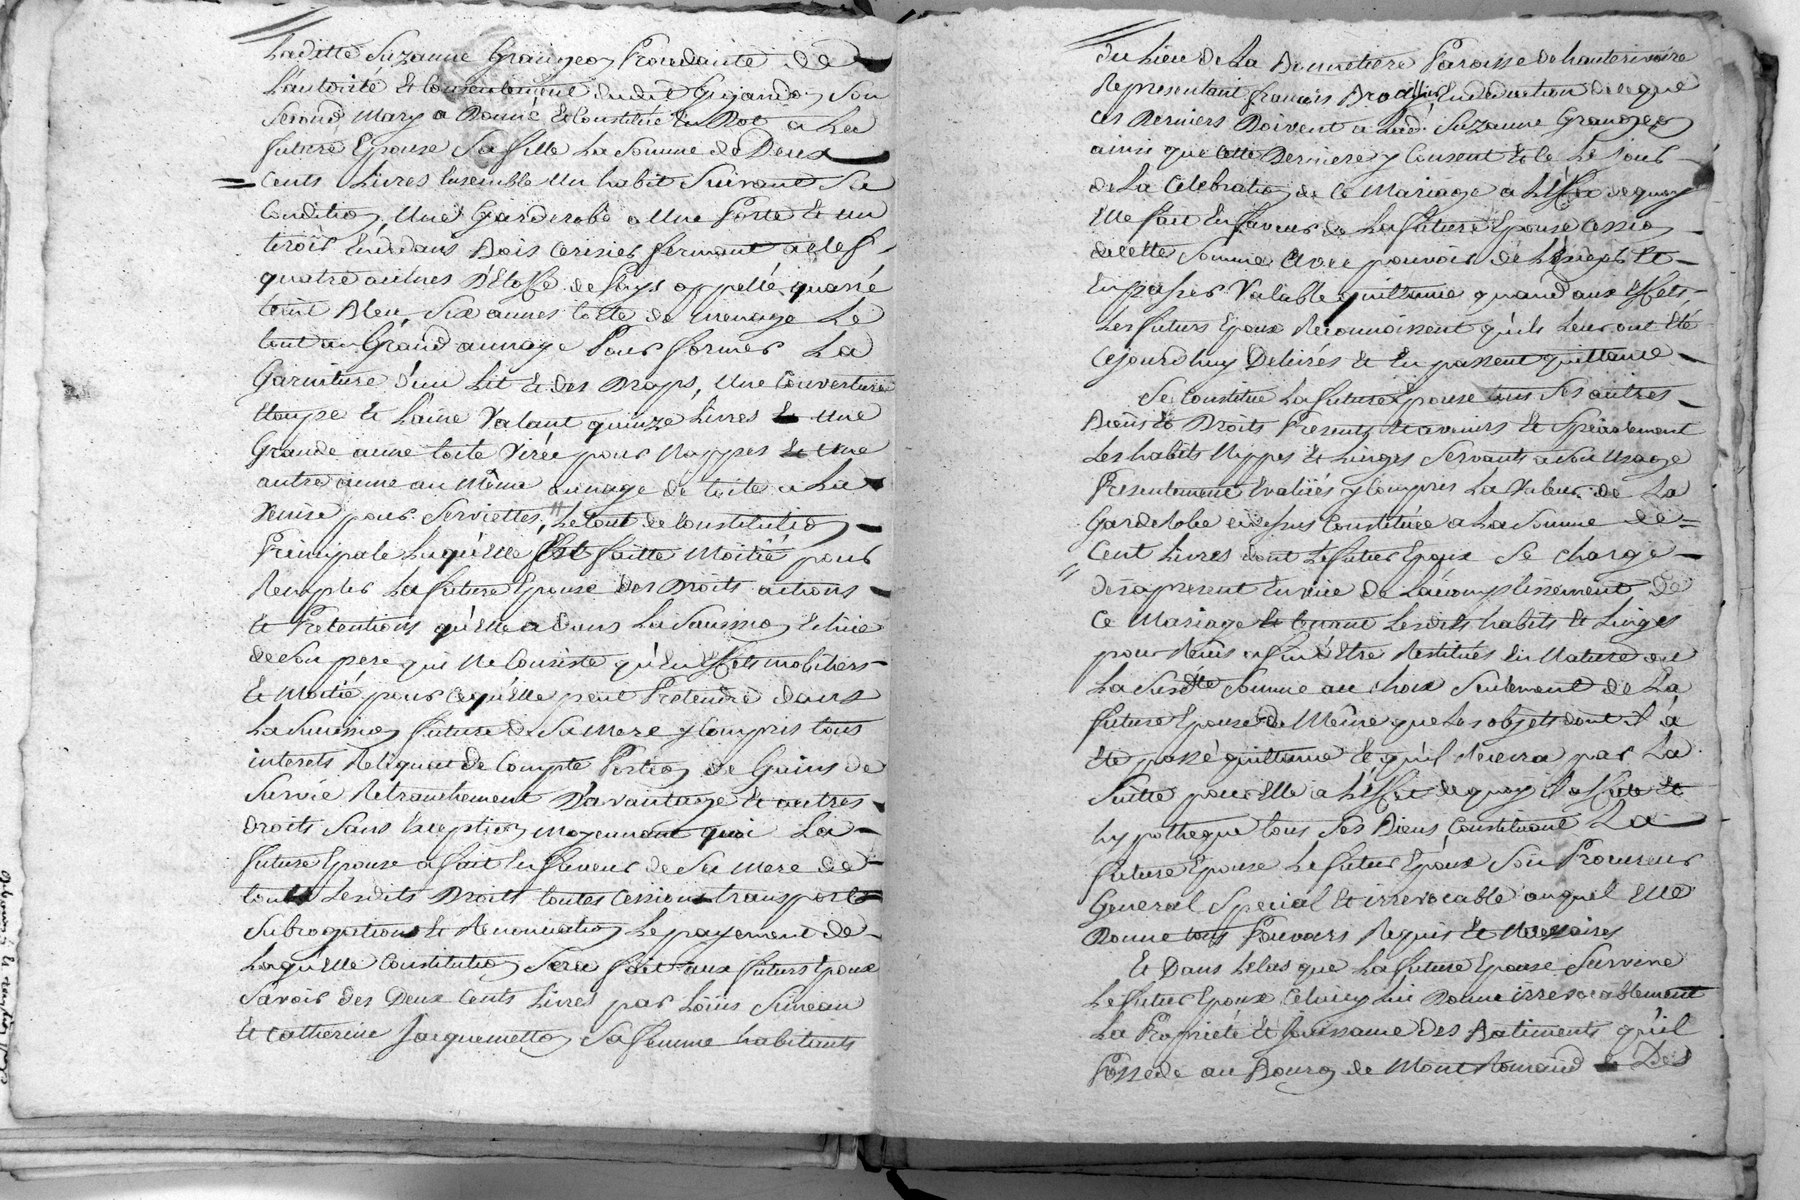 Laditte Suzanne Grangeon Procedante de
L'autorité et Consentement dudit Gojardon Son
Second Mary a Donné et Constitué En Dot a La
future Epouse Sa fille La Somme de Deux
Cents Livres Ensemble Un habit Suivant Sa
Condition, Une Garderobe a Une Porte et un
tiroir Endedans Bois Cerisier fermant a clef
quatre aulnes D'Etoffe de Pays appellé quarré
teint Bleu, Six aunes toile de menage Le
tout au Grand aunage Pour former La
Garniture d'un Lit et des Draps, Une Couverture
Etoupe et Laine Valant quinze Livres et Une
Grande aune toile Virée pour Nappes et Une
autre aune au Même aunage de toile a La
Venise pour Serviettes, Le tout de Constitution
Principale Laquelle Est faitte Moitié pour
Remplir La future Epouse des Droits actions
et Pretentions qu'Elle a dans La Sucession Echüe
de Son pere qui Ne Consiste qu'En Effets mobiliers
Et Moitié pour Cequ'Elle peut Pretendre dans
La Sucession future de Sa Mere y Compris tous
interets Reliquat de Compte Portion de Gains de
Survie Retranchement D'avantage Et autres
droits Sans Exception Moyennant quoi La
future Epouse a fait En faveur de Sa Mere de
tous Lesdits Droits toutes Cessions transports
Subrogations et Renonciation Le payement de
Laquelle Constitution Sera fait aux futurs Epoux
Savoir des Deux Cents Livres par Loüis Simean
Et Catherine Jacquemetton Sa femme habitants
du Lieu de La Paroisse de hauterivoire
Representant françois En Deduction de ceque
ces Derniers Doivent a Lad. Suzanne Grangeon
ainsi que Cette Derniere y Consent Et ce Le Jour
de La Celebration de Ce Mariage a L'Effet de quoy
Elle fait En faveur de La future Epouse Cession
de cette Somme Avec pouvoir de L'Exiger Et
En passer Valable quittance quand aux Effets,
Les futurs Epoux Reconnoissent qu'ils Leur ont Eté
Cejourd'huy Delivrés et En passent quittance
Se Constitue La future Epouse tous Ses autres
Biens et Droits Presents Et avenirs Et Spécialement
Les habits Nippes Et Linges Servants a Son Usage
Présentement Evalüés y Compris La Valeur de La
Garderobe cydessus Constituée a La Somme de
Cent Livres dont Le futur Epoux Se charge
dès apresent En vüe de L'accomplissement de
Ce Mariage Et tenant Lesdits habits Et Linges
pour Reçus afin d'Etre Restitués En Nature ou
La Susdtte Somme au choix Seulement de La
future Epouse de Même que Les objets dont il a
Eté passé quittance Et qu'il Recevra par La
Suitte pour Elle a L'Effet de quoy il affecte Et
hypotheque tous Ses Biens Constituant La
future Epouse Le futur Epoux Son Procureur
General Special Et irrevocable auquel Elle
Donne tous Pouvoirs Requis Et Necessaires
Et Dans Le Cas que La future Epouse Survive
Le futur Epoux Celuicy lui Donne irrevocablement
La Propriété Et Jouissance des Batiments qu'il
Possede au Bourg de Montromand Des